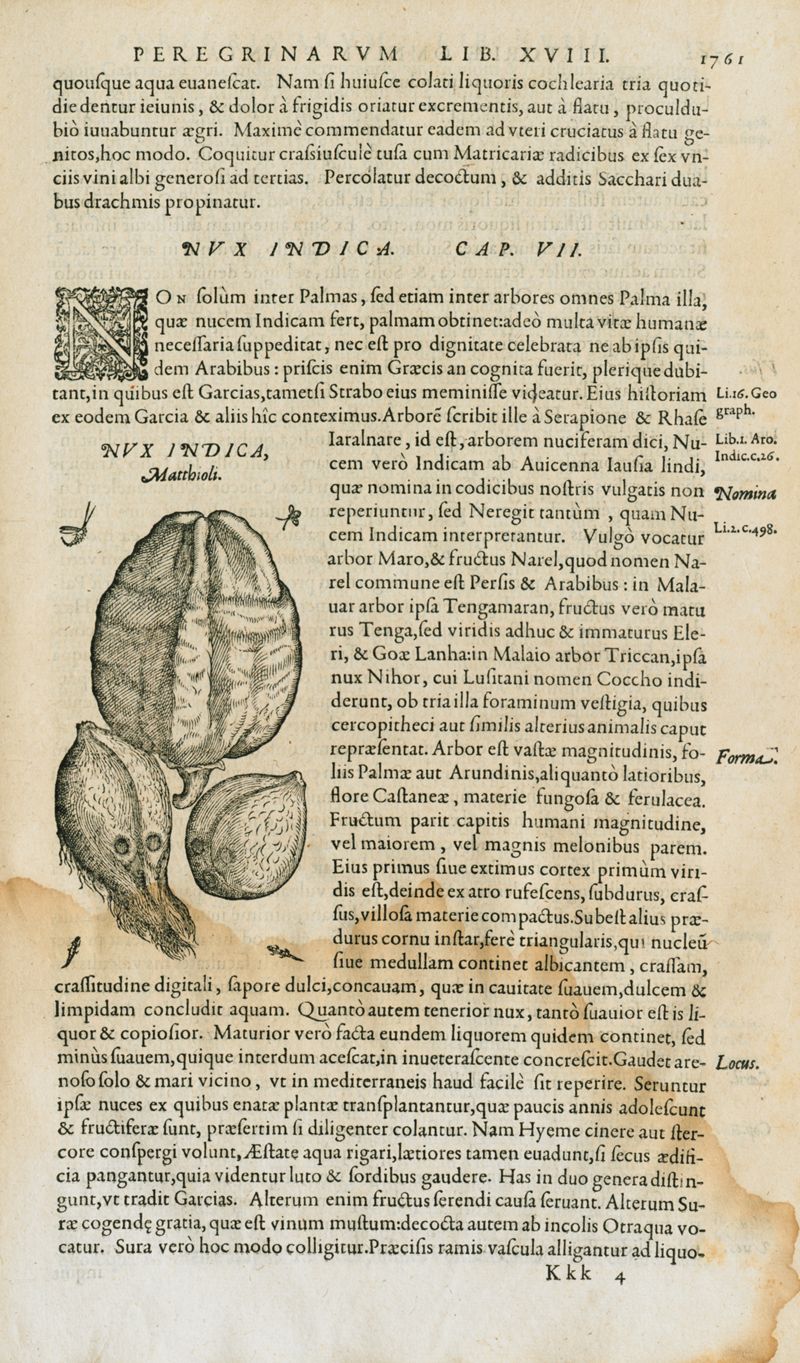 PEREGRINARVM LIB. XVIII. 1761
quouſque aqua euaneſcat. Nam ſi huiuſce colati liquoris cochlearia tria quoti-
die dentur ieiunis, & dolor à frigidis oriatur excrementis, aut à flatu, proculdu-
biò iuuabuntur ægri. Maximè commendatur eadem ad vteri cruciatus à flatu ge-
nitos, hoc modo. Coquitur craſsiuſculè tuſa cum Matricariæ radicibus ex ſex vn-
ciis vini albi generoſi ad tertias. Percolatur decoctum, & additis Sacchari dua-
bus drachmis propinatur.
NVX INDICA. CAP. VII.
NON ſolùm inter Palmas, ſed etiam inter arbores omnes Palma illa,
quæ nucem Indicam fert, palmam obtinet: adeò multa vitæ humanæ
neceſſaria ſuppeditat, nec eſt pro dignitate celebrata ne ab ipſis qui-
dem Arabibus: priſcis enim Græcis an cognita fuerit, plerique dubi-
tant, in quibus eſt Garcias, tametſi Strabo eius meminiſſe videatur. Eius hiſtoriam
Li.16. Geo
ex eodem Garcia & aliis hîc conteximus. Arborẽ ſcribit ille à Serapione & Rhaſe
graph.
NVX INDICA,
Matthioli.
Iaralnare, id eſt, arborem nuciferam dici, Nu-
Lib.1. Aro.
cem verò Indicam ab Auicenna Iauſia lindi,
Indic.c.26.
quæ nomina in codicibus noſtris vulgatis non
Nomina
reperiuntur, ſed Neregit tantùm, quam Nu-
cem Indicam interpretantur. Vulgò vocatur
Li.2.c.498.
arbor Maro, & fructus Narel, quod nomen Na-
rel commune eſt Perſis & Arabibus: in Mala-
uar arbor ipſa Tengamaran, fructus verò matu
rus Tenga, ſed viridis adhuc & immaturus Ele-
ri, & Goæ Lanha: in Malaio arbor Triccan, ipſa
nux Nihor, cui Luſitani nomen Coccho indi-
derunt, ob tria illa foraminum veſtigia, quibus
cercopitheci aut ſimilis alterius animalis caput
repræſentat. Arbor eſt vaſtæ magnitudinis, fo-
Forma.
liis Palmæ aut Arundinis, aliquantò latioribus,
flore Caſtaneæ, materie fungoſa & ferulacea.
Fructum parit capitis humani magnitudine,
vel maiorem, vel magnis melonibus parem.
Eius primus ſiue extimus cortex primùm viri-
dis eſt, deinde ex atro rufeſcens, ſubdurus, craſ-
ſus, villoſa materie compactus. Subeſt alius præ-
durus cornu inſtar, ferè triangularis, qui nucleũ
ſiue medullam continet albicantem, craſſam,
craſſitudine digitali, ſapore dulci, concauam, quæ in cauitate ſuauem, dulcem &
limpidam concludit aquam. Quantò autem tenerior nux, tantò ſuauior eſt is li-
quor & copioſior. Maturior verò facta eundem liquorem quidem continet, ſed
minùs ſuauem, quique interdum aceſcat, in inueteraſcente concreſcit. Gaudet are-
Locus.
noſo ſolo & mari vicino, vt in mediterraneis haud facilè ſit reperire. Seruntur
ipſæ nuces ex quibus enatæ plantæ tranſplantantur, quæ paucis annis adoleſcunt
& fructiferæ ſunt, præſertim ſi diligenter colantur. Nam Hyeme cinere aut ſter-
core conſpergi volunt, Æſtate aqua rigari, lætiores tamen euadunt, ſi ſecus ædifi-
cia pangantur, quia videntur luto & ſordibus gaudere. Has in duo genera diſtin-
gunt, vt tradit Garcias. Alterum enim fructus ferendi cauſa ſeruant. Alterum Su-
ræ cogendę gratia, quæ eſt vinum muſtum: decocta autem ab incolis Otraqua vo-
catur. Sura verò hoc modo colligitur. Præciſis ramis vaſcula alligantur ad liquo-
Kkk 4